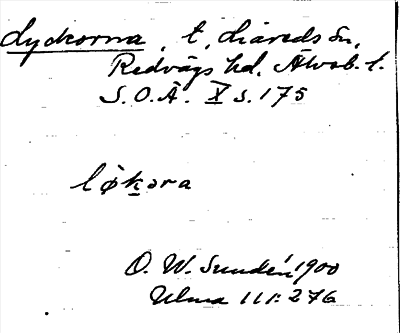 Lyckorna, t, Liareds sn,
Redvägs hd. Älvsb. l.
S.O.Ä. X s. 175
løkɔra
O. W. Sundén 1900
Ulma 111:276